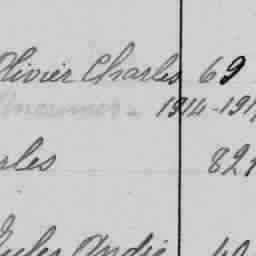 Olivier Charles 69
1914-191
rles 821
Jules André 40